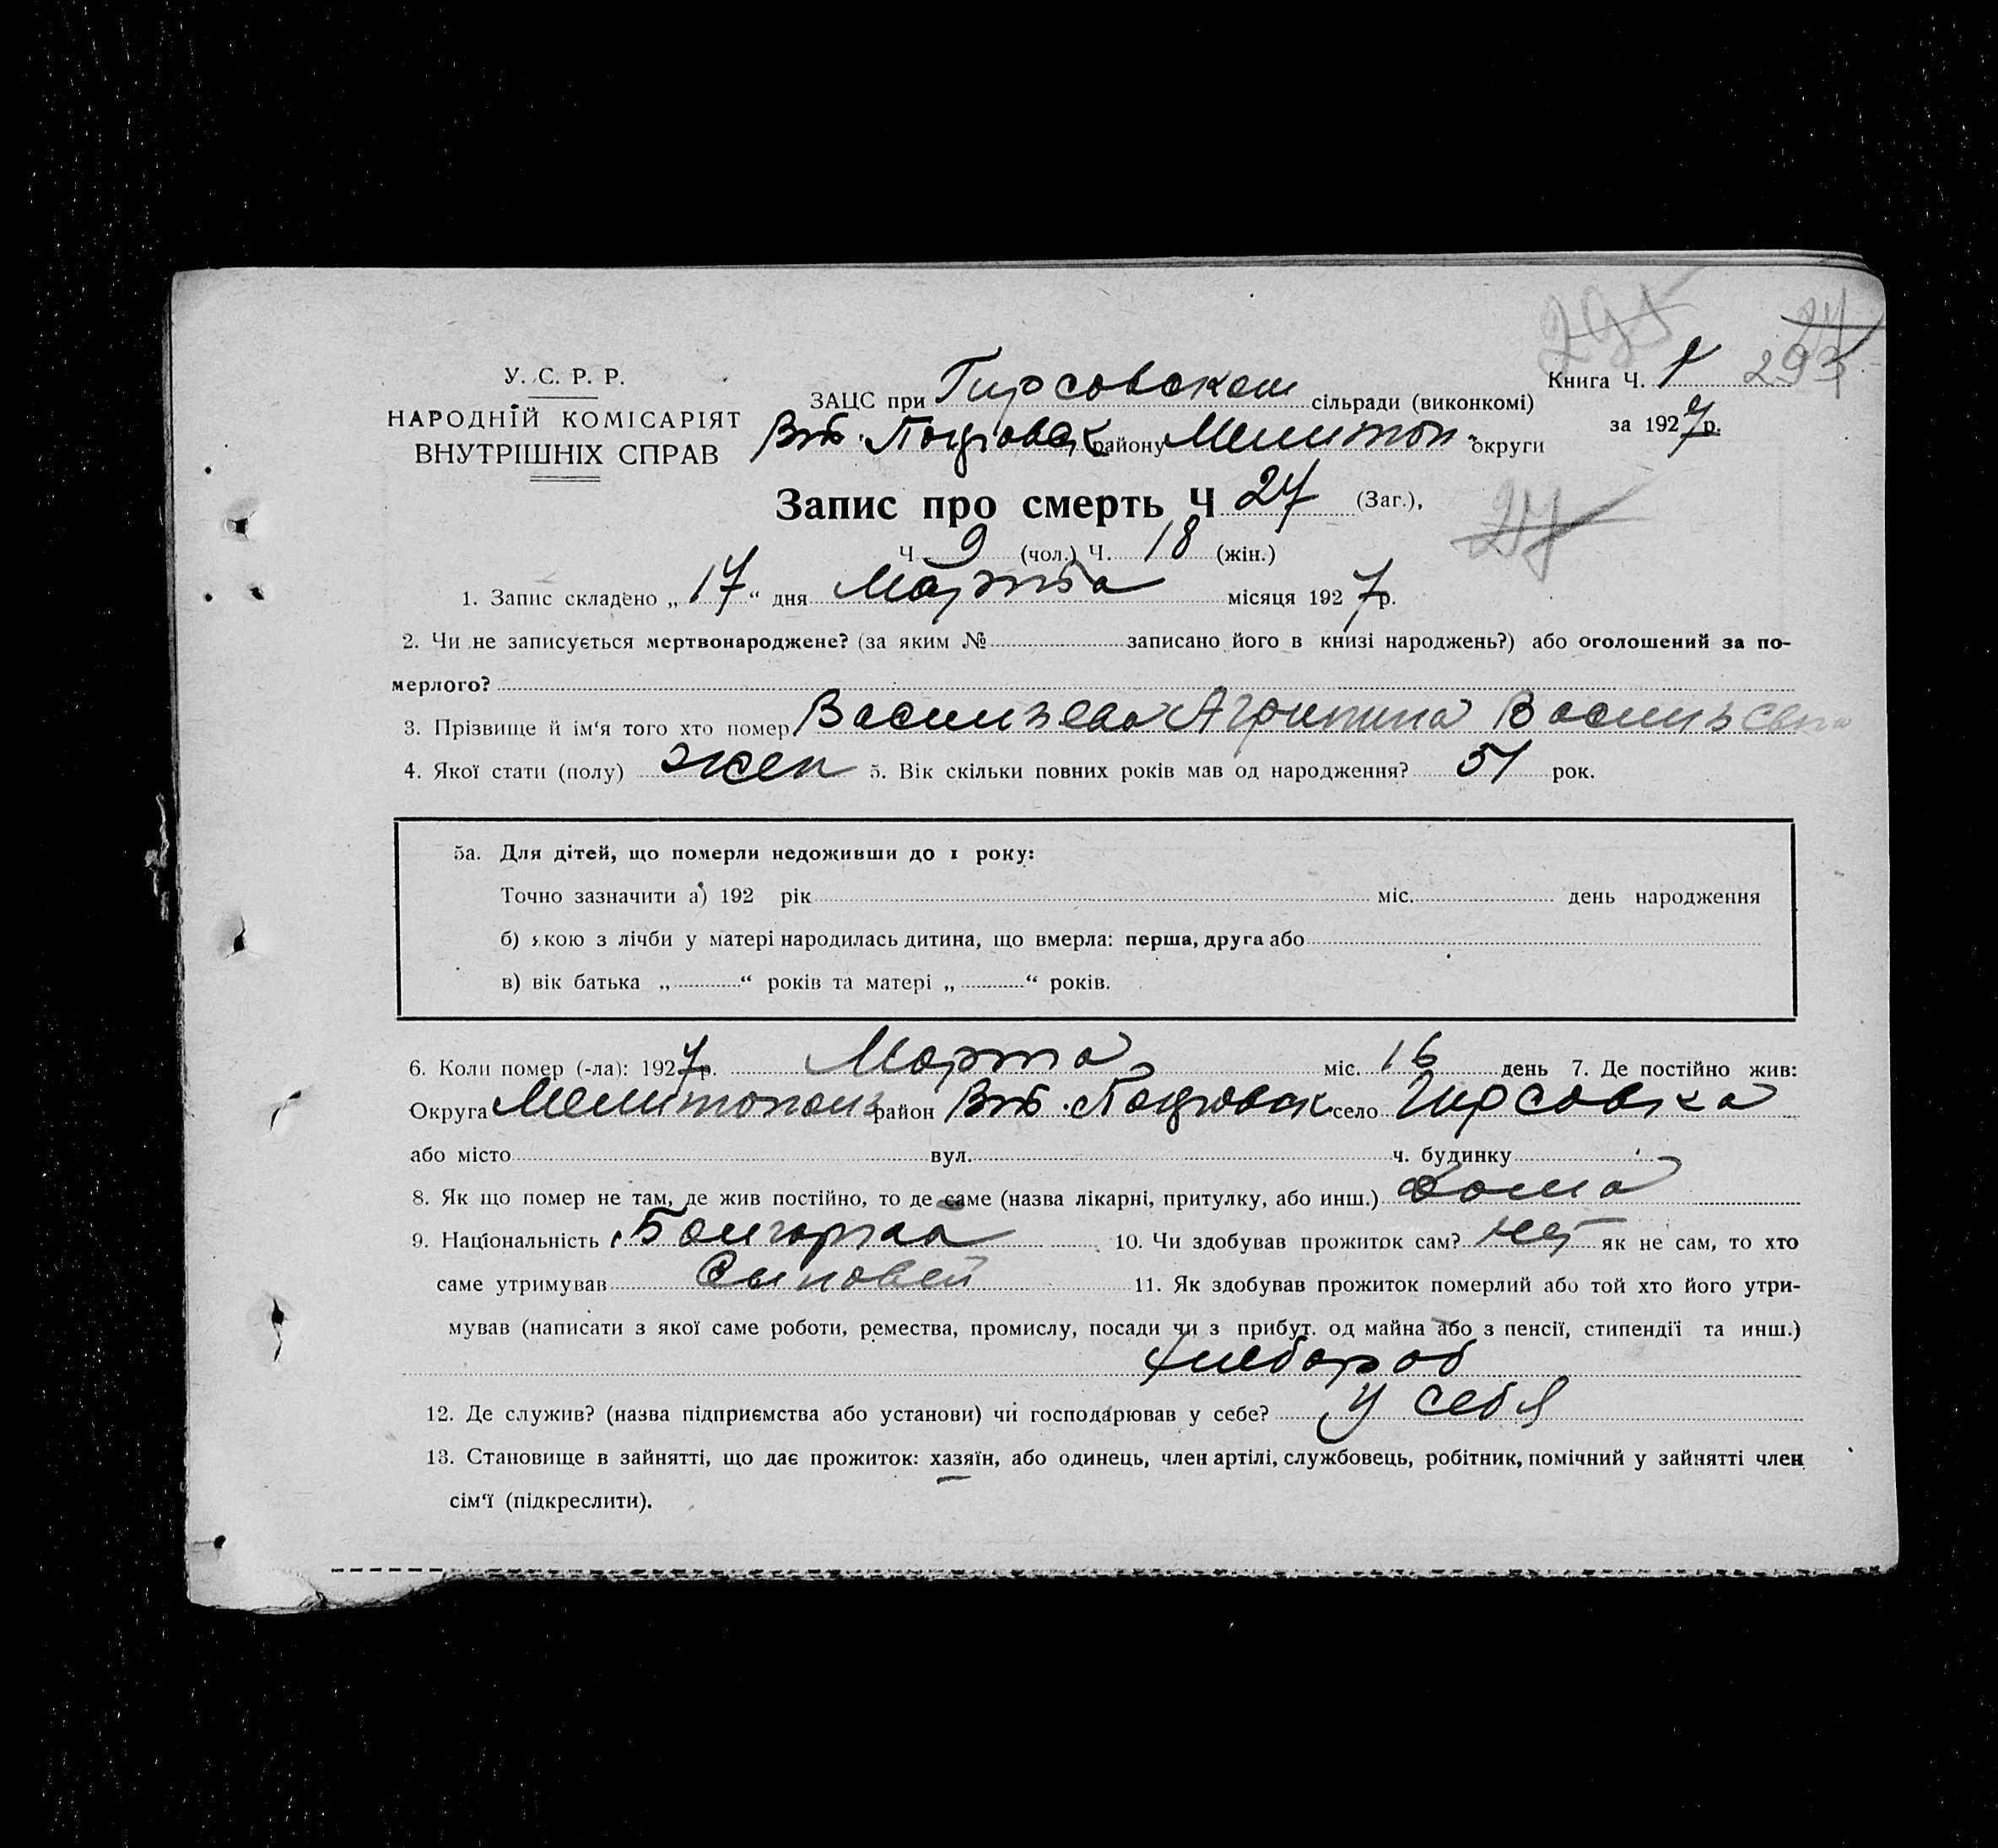 295 27
У. С. Р. Р.
НАРОДНІЙ КОМІСАРІЯТ
ВНУТРІШНІХ СПРАВ
Книга Ч. 1 293
ЗАЦС при Гирсовском сільради (виконкомі)
за 1927 р.
району Мелитоп. округи
Запис про смерть Ч 27 (Заг.),
27
Ч 9 (чол.) Ч. 18 (жін.)
1. Запис складено „ 17 “ дня Марта місяця 1927 р.
2. Чи не записується мертвонароджене? (за яким № записано його в книзі народжень?) або оголошений за по-
мерлого?
3. Прізвище й ім‘я того хто помер Васильева Агрипина Васильевна
4. Якої стати (полу) жен 5. Вік скільки повних років мав од народження? 51 рок.
5а. Для дітей, що померли недоживши до 1 року:
Точно зазначити а) 192 рік міс. день народження
б) якою з лічби у матері народилась дитина, що вмерла: перша, друга або
в) вік батька „ “ років та матері „ “ років.
6. Коли помер (-ла): 1927 р. Марта міс. 16 день 7. Де постійно жив:
Округа Мелитопольс район село Гирсовка
або місто вул. ч. будинку
8. Як що помер не там, де жив постійно, то де саме (назва лікарні, притулку, або инш.) дома
9. Національність Болгарка 10. Чи здобував прожиток сам? нет як не сам, то хто
саме утримував Сыновей 11. Як здобував прожиток померлий або той хто його утри-
мував (написати з якої саме роботи, ремества, промислу, посади чи з прибут. од майна або з пенсії, стипендії та инш.)
хлебороб
12. Де служив? (назва підприємства або установи) чи господарював у себе? у себя
13. Становище в зайнятті, що дає прожиток: хазяїн, або одинець, член артілі, службовець, робітник, помічний у зайнятті член
сім‘ї (підкреслити).